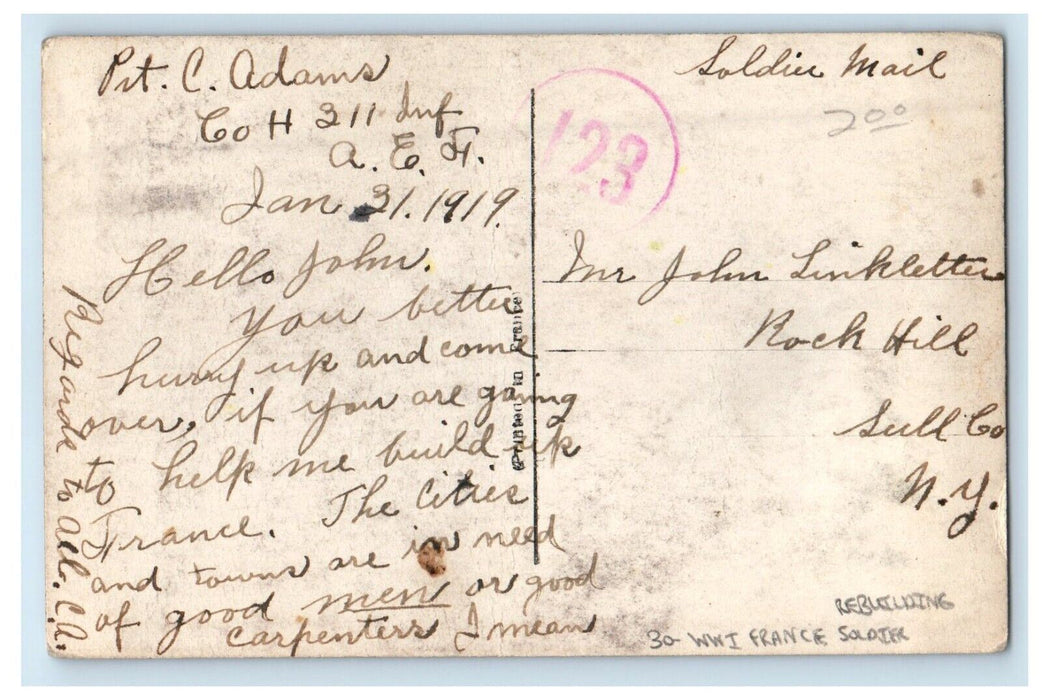 Pvt. C. Adams
Co H 311 Inf
A. E. F.
Jan 31. 1919.
Hello John.
You better
hurry up and come
over, if you are going
to help me build up
France. The Cities
and towns are in need
of good men or good
carpenters I mean
Regards to all. C.A.
Printed in France
Soldier Mail
123
2.00
Mr John Linkletter
Rock Hill
Sull Co
N.Y.
REBUILDING
30- WWI FRANCE SOLDIER